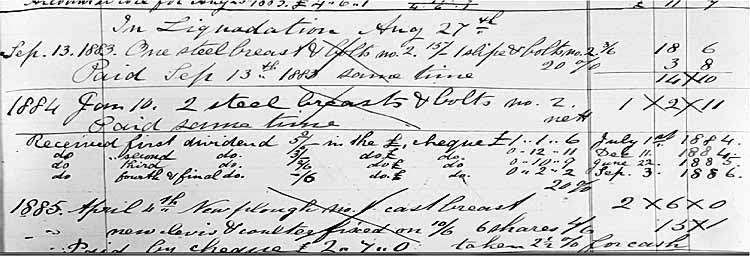 Account for Aug 1883. £4..6..1 £ 11 7
In Liquadation Aug 27th
Sep. 13. 1883. One steel breast & bolts no. 2. 15/ 1 slipe & bolts no. 2 3/6 18 6
20% 3 8
Paid Sep 13th 1883 same time 14 x 10
1884 Jan 10. 2 steel breasts & bolts no. 2. nett 1 x 2 x 11
Paid same time
Received first dividend 5/ in the £, cheque £1..1..6 July 1st 1884.
do second do. 3/ do £ do. 0..12..11 Dec 11. 1884.
do third do. 2/6 do £ do. 0..10..9 June 22. 1885.
do fourth & final do. -/6 do £ do. 0..2..2 Sep. 3. 1886.
20%
1885. April 4th New plough no. 1 cast breast 2 x 6 x 0
" " new clevis & coulter fixed on 10/6 6 shares 4/6 15 x 1
" Paid by cheque £2..7..0 taken 2½% for cash